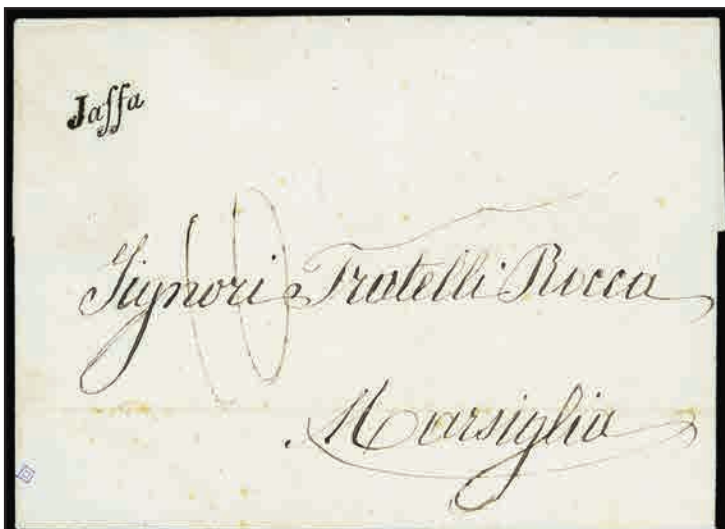 Jaffa
10
Signori Fratelli Rocca
Marsiglia